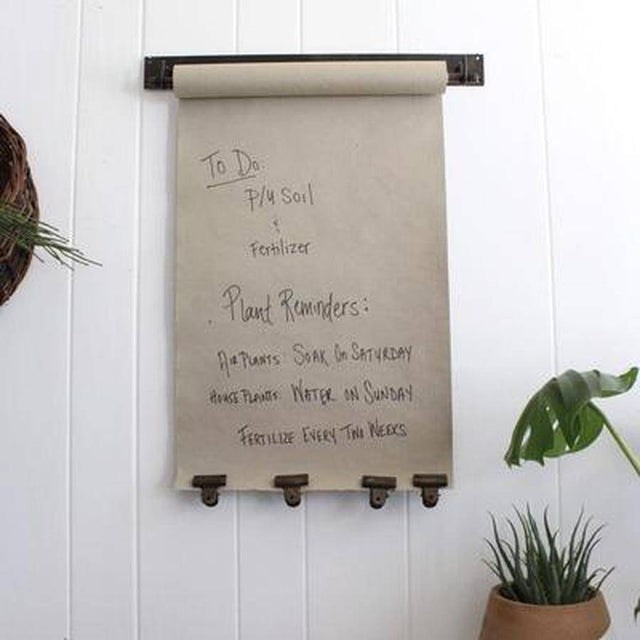 To Do:
P/U Soil
&
Fertilizer
Plant Reminders:
AIR PLANTS: SOAK ON SATURDAY
HOUSE PLANTS: WATER ON SUNDAY
FERTILIZE EVERY TWO WEEKS